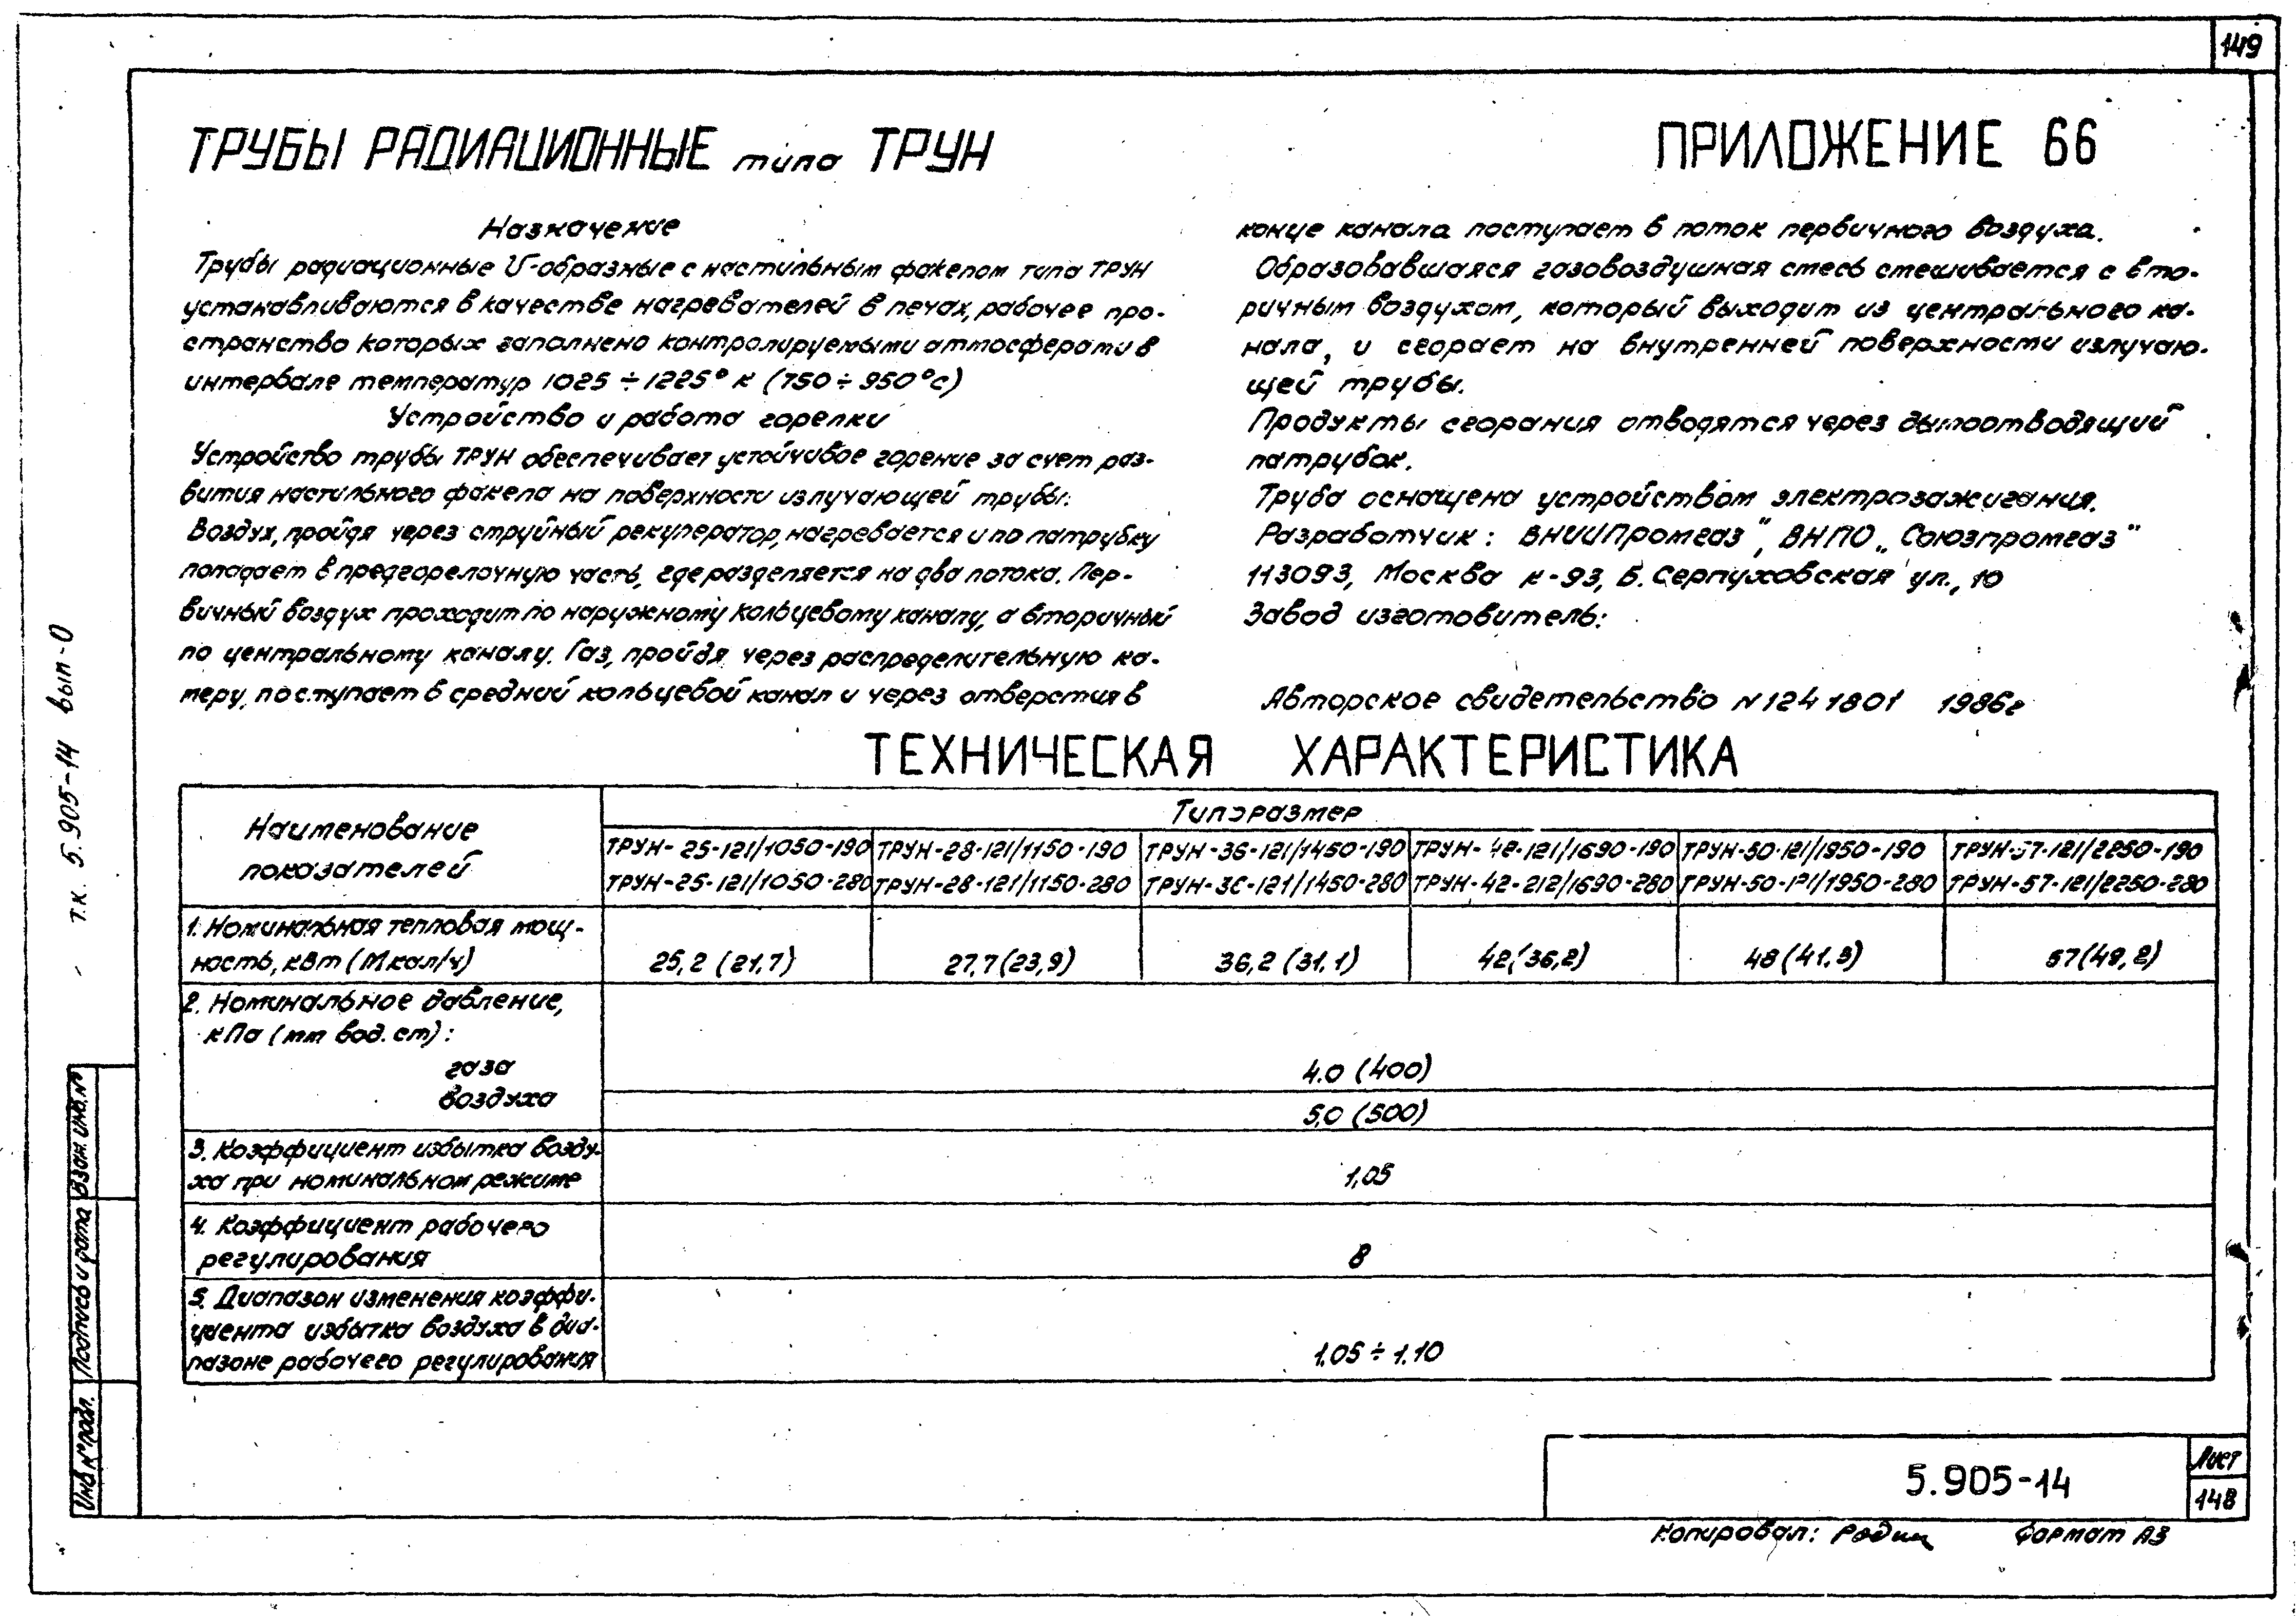 149
ТРУБЫ РАДИАЦИОННЫЕ типа ТРУН
ПРИЛОЖЕНИЕ 66
Назначение
Трубы радиационные U-образные с настильным факелом типа ТРУН
устанавливаются в качестве нагревателей в печах, рабочее про-
странство которых заполнено контролируемыми атмосферами в
интервале температур 1025 ÷ 1225° К (750 ÷ 950°С)
Устройство и работа горелки
Устройство трубы ТРУН обеспечивает устойчивое горение за счет раз-
вития настильного факела на поверхности излучающей трубы.
Воздух, пройдя через струйный рекуператор, нагревается и по патрубку
попадает в предгорелочную часть, где разделяется на два потока. Пер-
вичный воздух проходит по наружному кольцевому каналу, а вторичный
по центральному каналу. Газ, пройдя через распределительную ка-
меру, поступает в средний кольцевой канал и через отверстия в
конце канала поступает в поток первичного воздуха.
Образовавшаяся газовоздушная смесь смешивается с вто-
ричным воздухом, который выходит из центрального ка-
нала, и сгорает на внутренней поверхности излучаю-
щей трубы.
Продукты сгорания отводятся через дымоотводящий
патрубок.
Труба оснащена устройством электрозажигания.
Разработчик: ВНИИПромгаз", ВНПО „Союзпромгаз"
113093, Москва К-93, Б. Серпуховская ул., 10
Завод изготовитель:
Авторское свидетельство N 1241801 1986г
ТЕХНИЧЕСКАЯ ХАРАКТЕРИСТИКА
Наименование
показателей
Типоразмер
ТРУН-25-121/1050-190 ТРУН-28-121/1150-190 ТРУН-36-121/1450-190 ТРУН-42-121/1690-190 ТРУН-50-121/1950-190 ТРУН-57-121/2250-190
ТРУН-25-121/1050-280 ТРУН-28-121/1150-280 ТРУН-36-121/1450-280 ТРУН-42-212/1690-280 ТРУН-50-121/1950-280 ТРУН-57-121/2250-280
1. Номинальная тепловая мощ-
ность, кВт (Мкал/ч)
25,2 (21,7) 27,7 (23,9) 36,2 (31,1) 42 (36,2) 48 (41,3) 57 (49,2)
2. Номинальное давление,
кПа (мм вод. ст):
газа
4.0 (400)
воздуха
5,0 (500)
3. Коэффициент избытка возду-
ха при номинальном режиме
1,05
4. Коэффициент рабочего
регулирования
8
5. Диапазон изменения коэффи-
циента избытка воздуха в диа-
пазоне рабочего регулирования
1.05 ÷ 1.10
т.к. 5.905-14 вып-0
Взам. инв. №
Подпись и дата
Инв № подл.
5.905-14
Лист
148
Копировал: Родин Формат А3